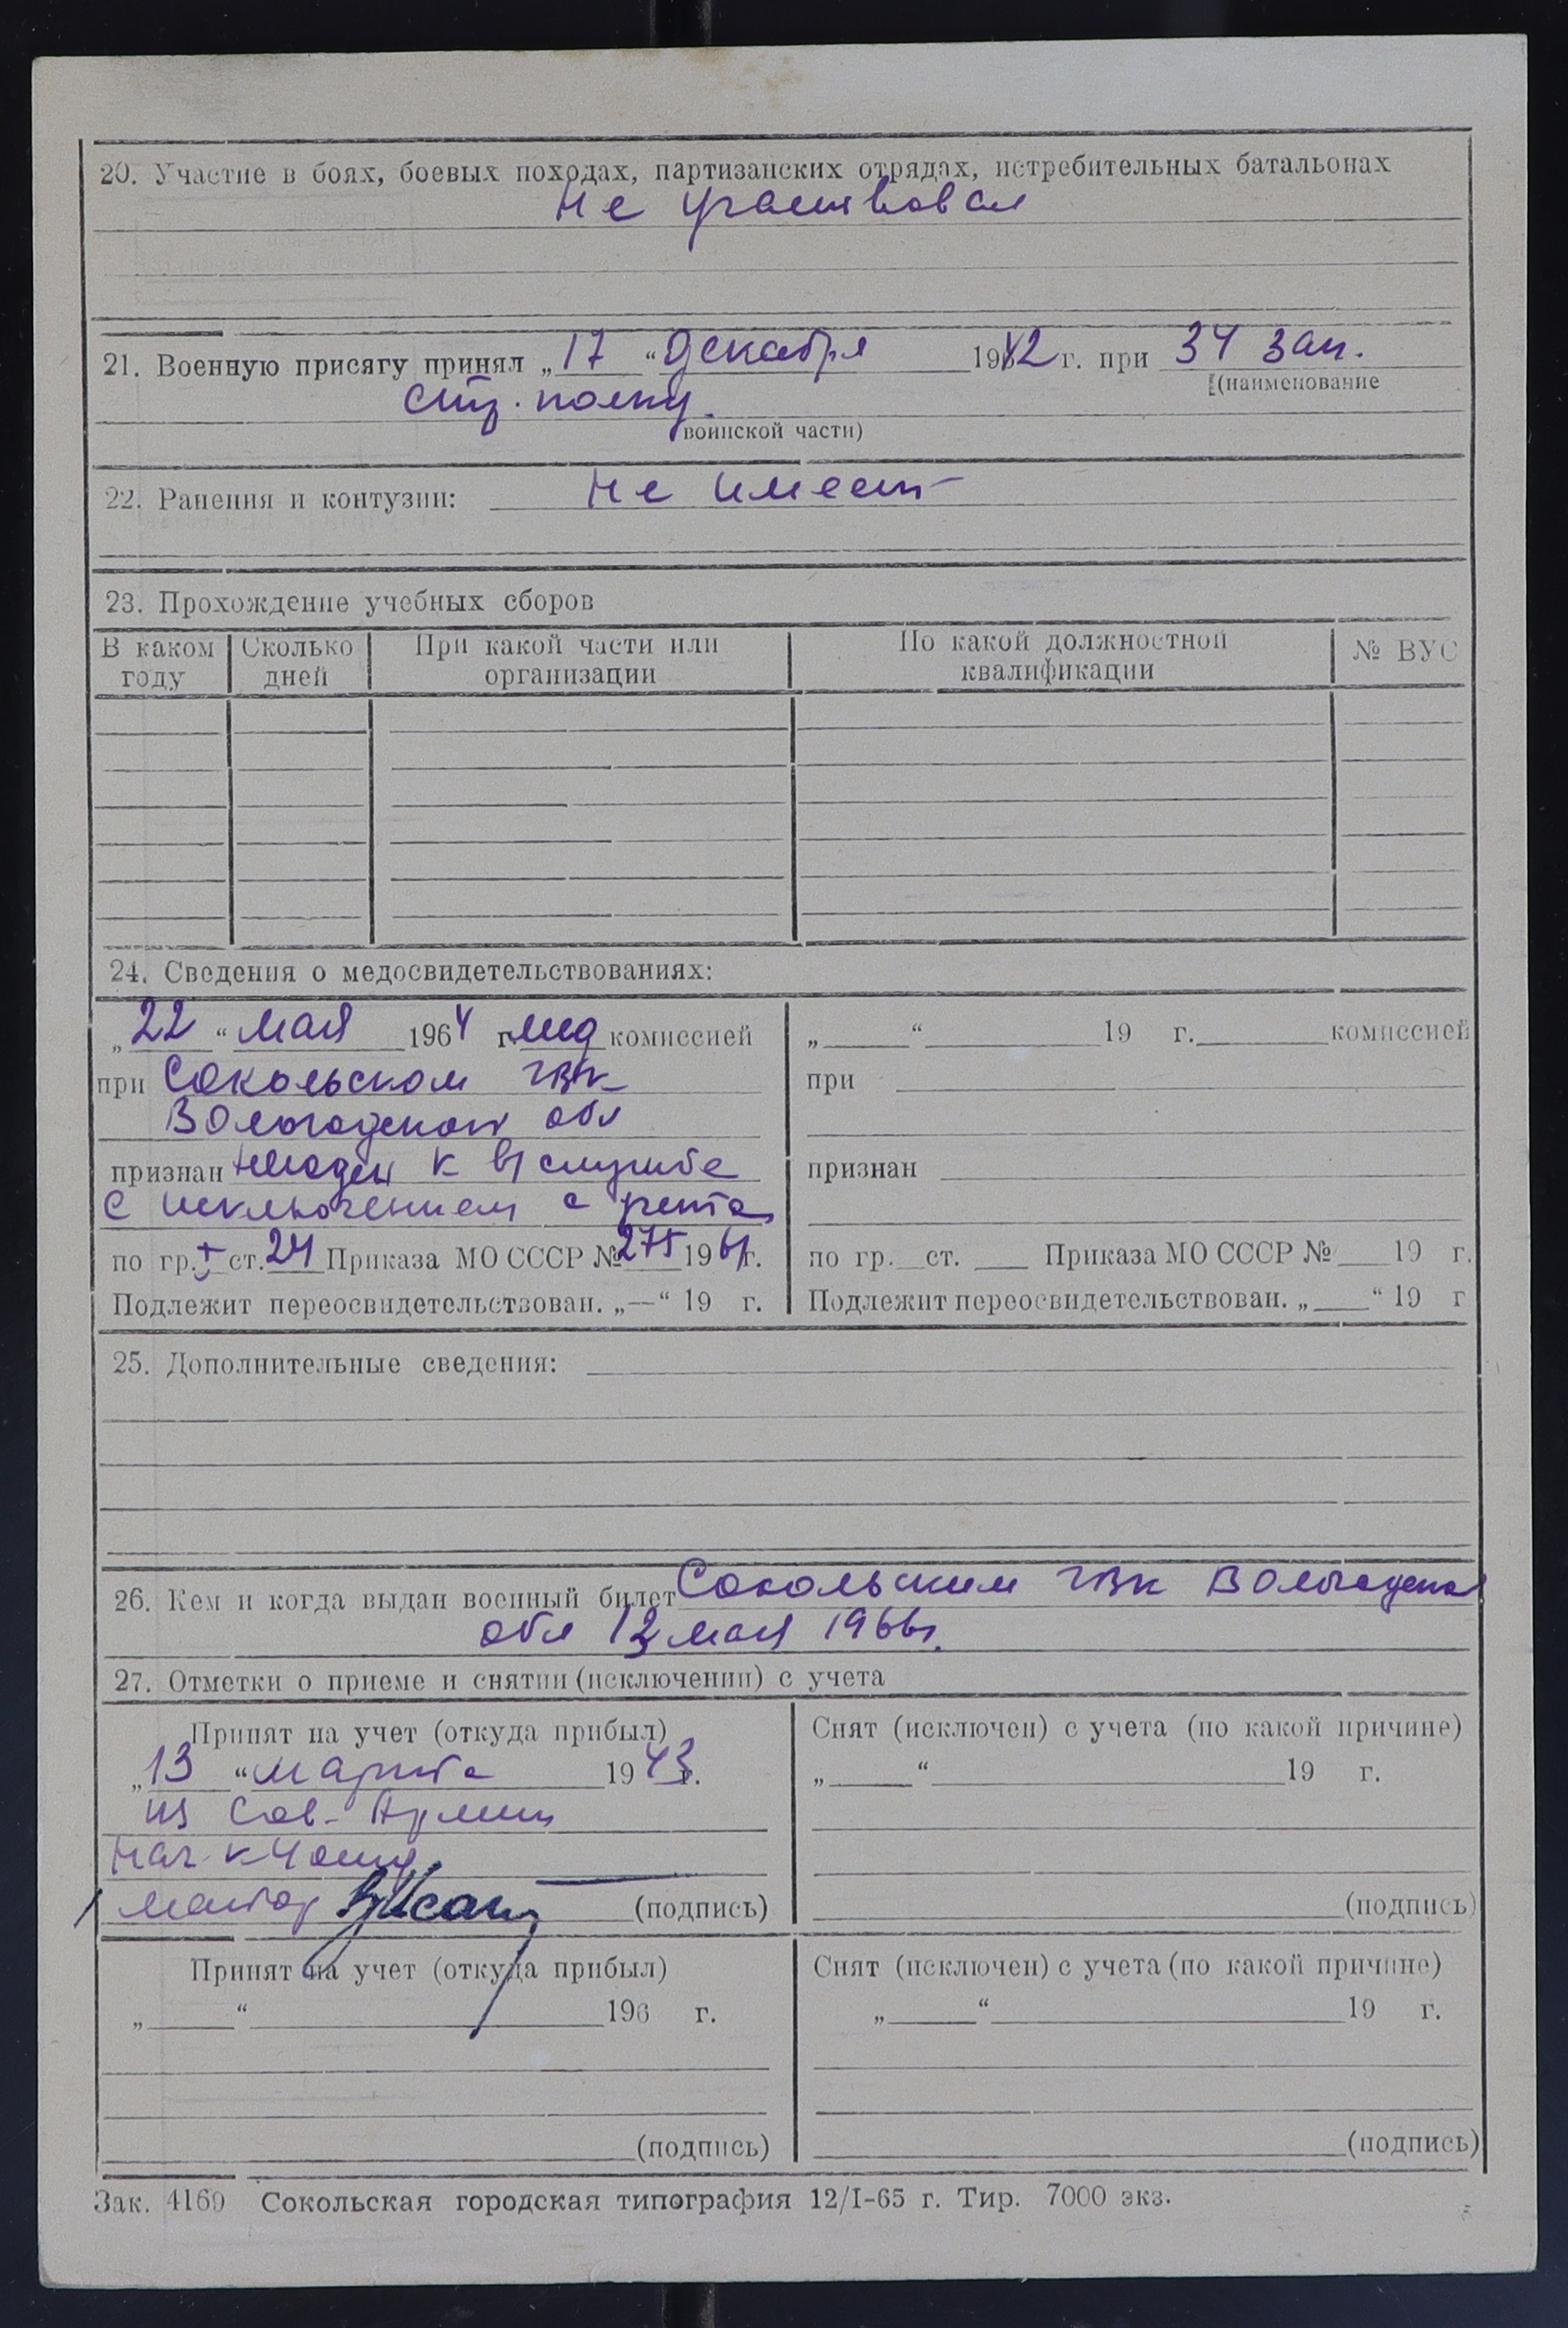 20. Участие в боях, боевых походах, партизанских отрядах, истребительных батальонах
не участвовал
21. Военную присягу принял „17“ декабря 1942 г. при 34 зап.
(наименование
стр. полку.
воинской части)
22. Ранения и контузии: не имеет
23. Прохождение учебных сборов
В каком году Сколько дней При какой части или организации По какой должностной квалификации № ВУС
24. Сведения о медосвидетельствованиях:
„22“ мая 1964 г. мед комиссией
при Сокольском ГВК
Вологодской обл
признан негоден к в/службе
с исключением с учета
по гр. I ст. 24 Приказа МО СССР № 275 196 г.
Подлежит переосвидетельствован. „—“ 19 г.
„ “ 19 г. комиссией
при
признан
по гр. ст. Приказа МО СССР № 19 г.
Подлежит переосвидетельствован. „ “ 19 г
25. Дополнительные сведения:
26. Кем и когда выдан военный билет Сокольским ГВК Вологодской
обл 12 мая 1966г.
27. Отметки о приеме и снятии (исключении) с учета
Принят на учет (откуда прибыл)
„13“ марта 1943 г.
из Сов. Армии
Нач. 4 отд.
майор (подпись)
Снят (исключен) с учета (по какой причине)
„ “ 19 г.
(подпись)
Принят на учет (откуда прибыл)
„ “ 196 г.
(подпись)
Снят (исключен) с учета (по какой причине)
„ “ 19 г.
(подпись)
Зак. 4169 Сокольская городская типография 12/I-65 г. Тир. 7000 экз.